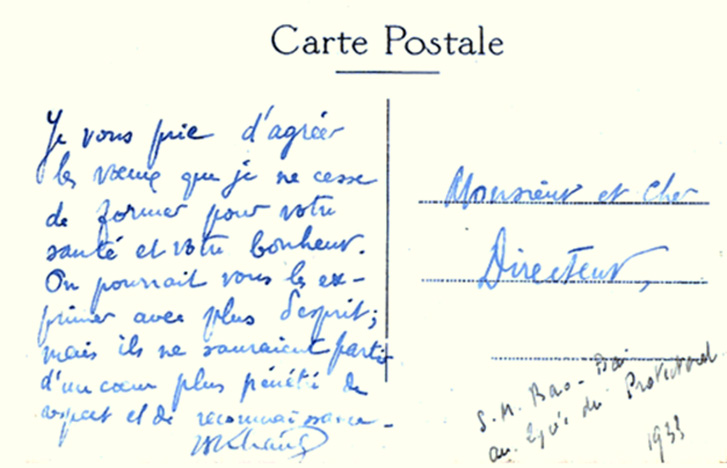 Carte Postale
Je vous prie d'agréer
les vœux que je ne cesse
de former pour votre
santé et votre bonheur.
On pourrait vous les ex-
primer avec plus d'esprit;
mais ils ne sauraient partir
d'un cœur plus pénétré de
respect et de reconnaissance.
Monsieur et cher
Directeur,
S. M. Bao-Dai
au Lycée du Protectorat
1933